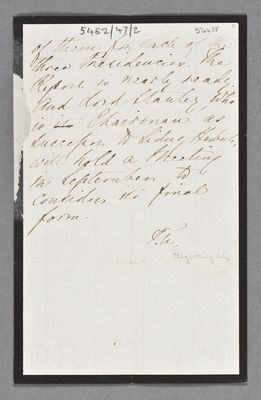 5482/47/2
56628
of them, for each of the
three Presidencies. The
Report is nearly ready.
And Lord Stanley, who
is its Chairman as
successor to Sidney Herbert,
will hold a Meeting
in September to
consider its final
form.
F.N.
Nightingale